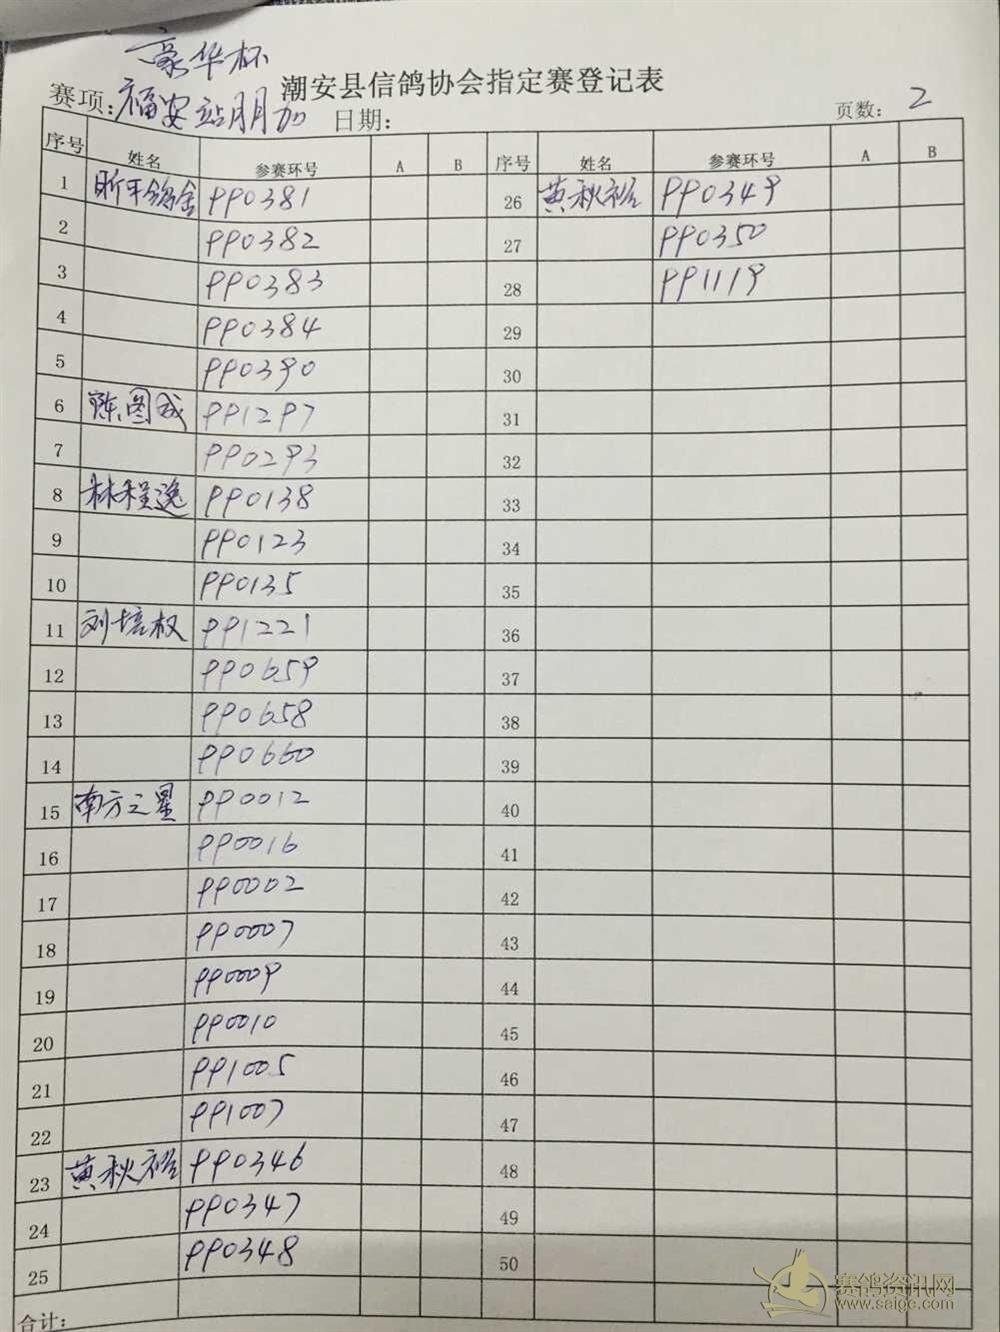 豪华杯
潮安县信鸽协会指定赛登记表
赛项:福安站朋加 日期: 页数: 2
序号 姓名 参赛环号 A B 序号 姓名 参赛环号 A B
1 昕平鸽舍 PP0381 26 黄秋裕 PP0349
2 PP0382 27 PP0350
3 PP0383 28 PP1119
4 PP0384 29
5 PP0390 30
6 陈图成 PP1297 31
7 PP0293 32
8 林程逸 PP0138 33
9 PP0123 34
10 PP0135 35
11 刘培权 PP1221 36
12 PP0659 37
13 PP0658 38
14 PP0660 39
15 南方之星 PP0012 40
16 PP0016 41
17 PP0002 42
18 PP0007 43
19 PP0009 44
20 PP0010 45
21 PP1005 46
22 PP1007 47
23 黄秋裕 PP0346 48
24 PP0347 49
25 PP0348 50
合计:
赛鸽资讯网
www.saige.com